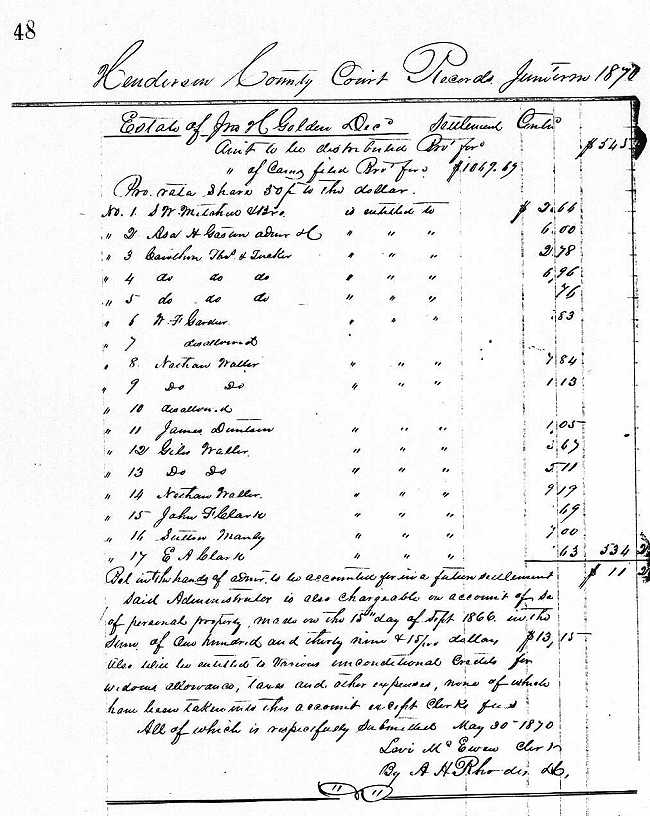 48
Henderson County Court Records June term 1870
Estate of Jno H Golden Decd Settlement Contd
Amt to be distributed Brot ford $545
" of Claims filed Brot ford $1069.69
Pro. rata share 50 to the dollar.
No. 1. S W Mitchell & Bro. is entitled to $ 2.66
" 2 Asa H Gaston admr &C " " " 6.00
" 3 Cawthon Thos & Tucker " " " 2.78
" 4 do do do " " " 6.96
" 5 do do do " " " 76
" 6 W. F Garden " " " .83
" 7 disallowed
" 8. Nathan Waller " " " 7 84
" 9 Do Do " " " 1.13
" 10 disallowed
" 11 James " " " 1.05
" 12 Giles Waller. " " " 67
" 13 Do Do " " " 5 11
" 14 Nathan Waller. " " " 9 19
" 15 John F Clark " " " 69
" 16 Manly " " " 7 00
" 17 E A Clark " " " 63 534 2
Bal in the hands of admr. to be accounted for in a future settlement $ 11 2
Said Administrator is also chargeable on account of
of personal property, made on the 15th day of Sept 1866. in the
Sum of One hundred and thirty nine & 15/100 dollars $13,15
Also will be entitled to Various unconditional Credits for
widows allowance, taxes and other expenses, none of which
have been taken into this account except Clerks fees
All of which is respectfully Submitted May 30 1870
Levi Mc Ewen Clerk
By A H Rhodes D.C.
" "